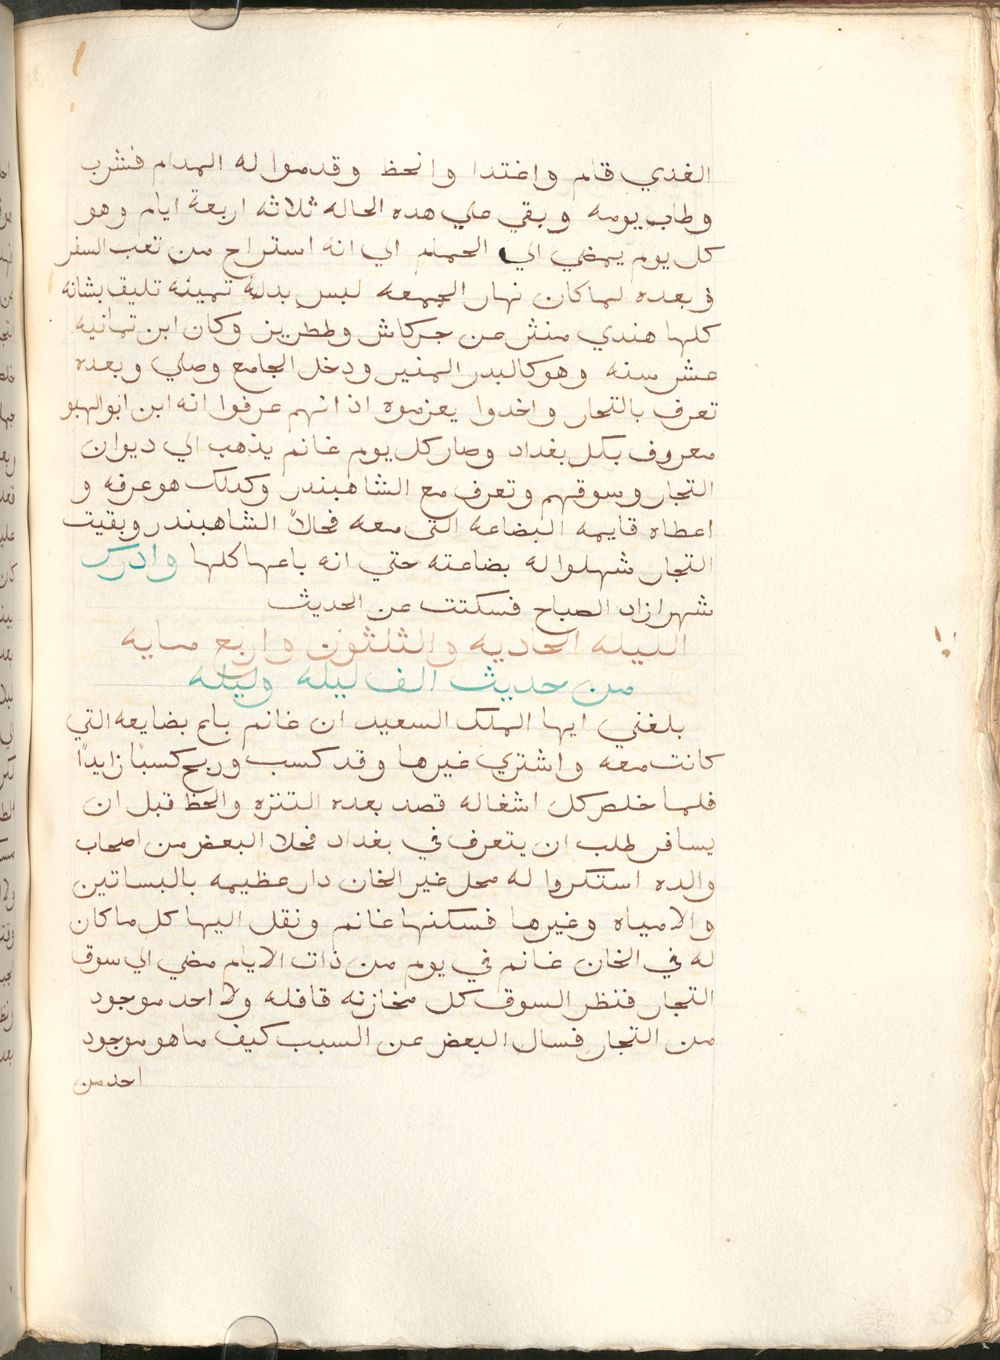 الغذي قام واغتدا وانحظ وقدموا له المدام فشرب
وطاب يومه وبقي علي هده الحاله ثلاثه اربعة ايام وهو
كل يوم يمضي الي الحمام الي انه استراح من تعب السفر
وبعده لما كان نهار الجمعه لبس بدلة تمينه تليق بشانه
كلها هندي منثر من جركاش وططريز وكان ابن تمانيه
عشر سنه وهو كالبدر المنير ودخل الجامع وصلي وبعده
تعرف بالتجار واخدوا يعزموه اد انهم عرفوا انه ابن ابو الهبو
معروف بكل بغداد وصار كل يوم غانم يذهب الي ديوان
التجار وسوقهم وتعرف مع الشاهبندر وكدلك هو عرفه و
اعطاه قايمه البضاعه التى معه فحالاً الشاهبندر وبقيت
التجار شهلوا له بضاعته حتي انه باعها كلها وادرك
شهرازاد الصباح فسكتت عن الحديث
الليله الحاديه والثلثون واربع مايه
من حديث الف ليله وليله
بلغني ايها الملك السعيد ان غانم باع بضايعه التي
كانت معه واشتري غيرها وقد كسب وربح كسبًا زايدًا
فلما خلص كل اشغاله قصد بعده التنزه والحظ قبل ان
يسافر طلب ان يتعرف في بغداد فحلا البعض من اصحاب
والده استكروا له محل غير الخان دار عظيمه بالبساتين
والامياه وغيرها فسكنها غانم ونقل اليها كل ما كان
له في الخان غانم في يوم من ذات الايام مضي الي سوق
التجار فنظر السوق كل مخازنه قافله ولا احد موجود
من التجار فسال البعض عن السبب كيف ما هو موجود
احد من